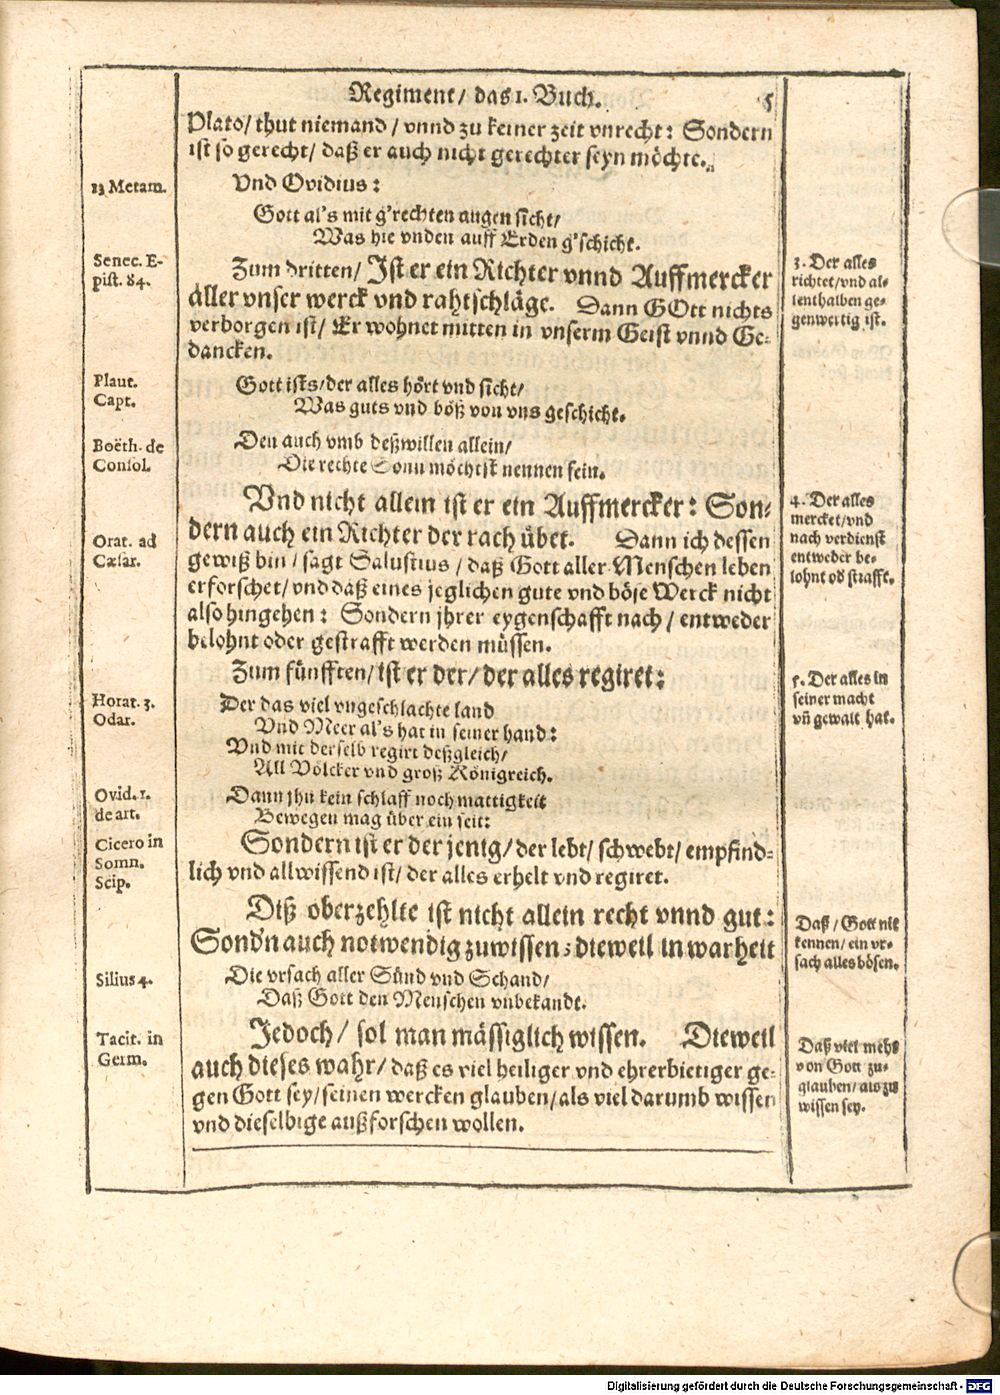 Regiment/ das 1. Buch. 5
Plato/ thut niemand/ vnnd zu keiner zeit vnrecht: Sondern
ist so gerecht/ daß er auch nicht gerechter seyn möchte.
13 Metam.
Vnd Ovidius:
Gott al's mit g'rechten augen sicht/
Was hie vnden auff Erden g'schicht.
Senec. E-
pist. 84.
Zum dritten/ Ist er ein Richter vnnd Auffmercker
aller vnser werck vnd rahtschläge. Dann GOtt nichts
verborgen ist/ Er wohnet mitten in vnserm Geist vnnd Ge-
dancken.
3. Der alles
richtet/vnd al-
lenthalben ge-
genwertig ist.
Plaut.
Capt.
Gott ists/der alles hört vnd sicht/
Was guts vnd böß von vns geschicht.
Boëth. de
Consol.
Den auch vmb deßwillen allein/
Die rechte Sonn möchtst nennen fein.
Vnd nicht allein ist er ein Auffmercker: Son-
dern auch ein Richter der rach übet. Dann ich dessen
gewiß bin/ sagt Salustius/ daß Gott aller Menschen leben
erforschet/ vnd daß eines jeglichen gute vnd böse Werck nicht
also hingehen: Sondern jhrer eygenschafft nach/ entweder
belohnt oder gestrafft werden müssen.
Orat. ad
Cæsar.
4. Der alles
mercket/vnd
nach verdienst
entweder be-
lohnt od' strafft.
Zum fünfften/ ist er der/ der alles regiret:
5. Der alles in
seiner macht
vñ gewalt hat.
Horat. 3.
Odar.
Der das viel vngeschlachte land
Vnd Meer al's hat in seiner hand:
Vnd mit derselb regirt deßgleich/
All Völcker vnd groß Königreich.
Ovid. 1.
de art.
Dann jhn kein schlaff noch mattigkeit
Bewegen mag über ein seit:
Cicero in
Somn.
Scip.
Sondern ist er der jenig/ der lebt/ schwebt/ empfind-
lich vnd allwissend ist/ der alles erhelt vnd regiret.
Diß oberzehlte ist nicht allein recht vnnd gut:
Sond'n auch notwendig zuwissen; dieweil in warheit
Daß/ Gott nit
kennen/ ein vr-
sach alles bösen.
Silius 4.
Die vrsach aller Sünd vnd Schand/
Daß Gott den Menschen vnbekandt.
Jedoch/ sol man mässiglich wissen. Dieweil
auch dieses wahr/ daß es viel heiliger vnd ehrerbietiger ge-
gen Gott sey/ seinen wercken glauben/ als viel darumb wissen
vnd dieselbige außforschen wollen.
Tacit. in
Germ.
Daß viel mehr
von Gott zu-
glauben/ als zu
wissen sey.
Digitalisierung gefördert durch die Deutsche Forschungsgemeinschaft - DFG